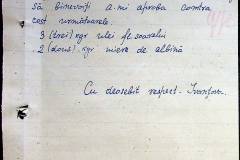 să binevoiți a-mi aproba contra
cost următoarele.
3 (trei) kgr ulei fl. soarelui
2 (două) kgr miere de albină
Cu deosebit respect -